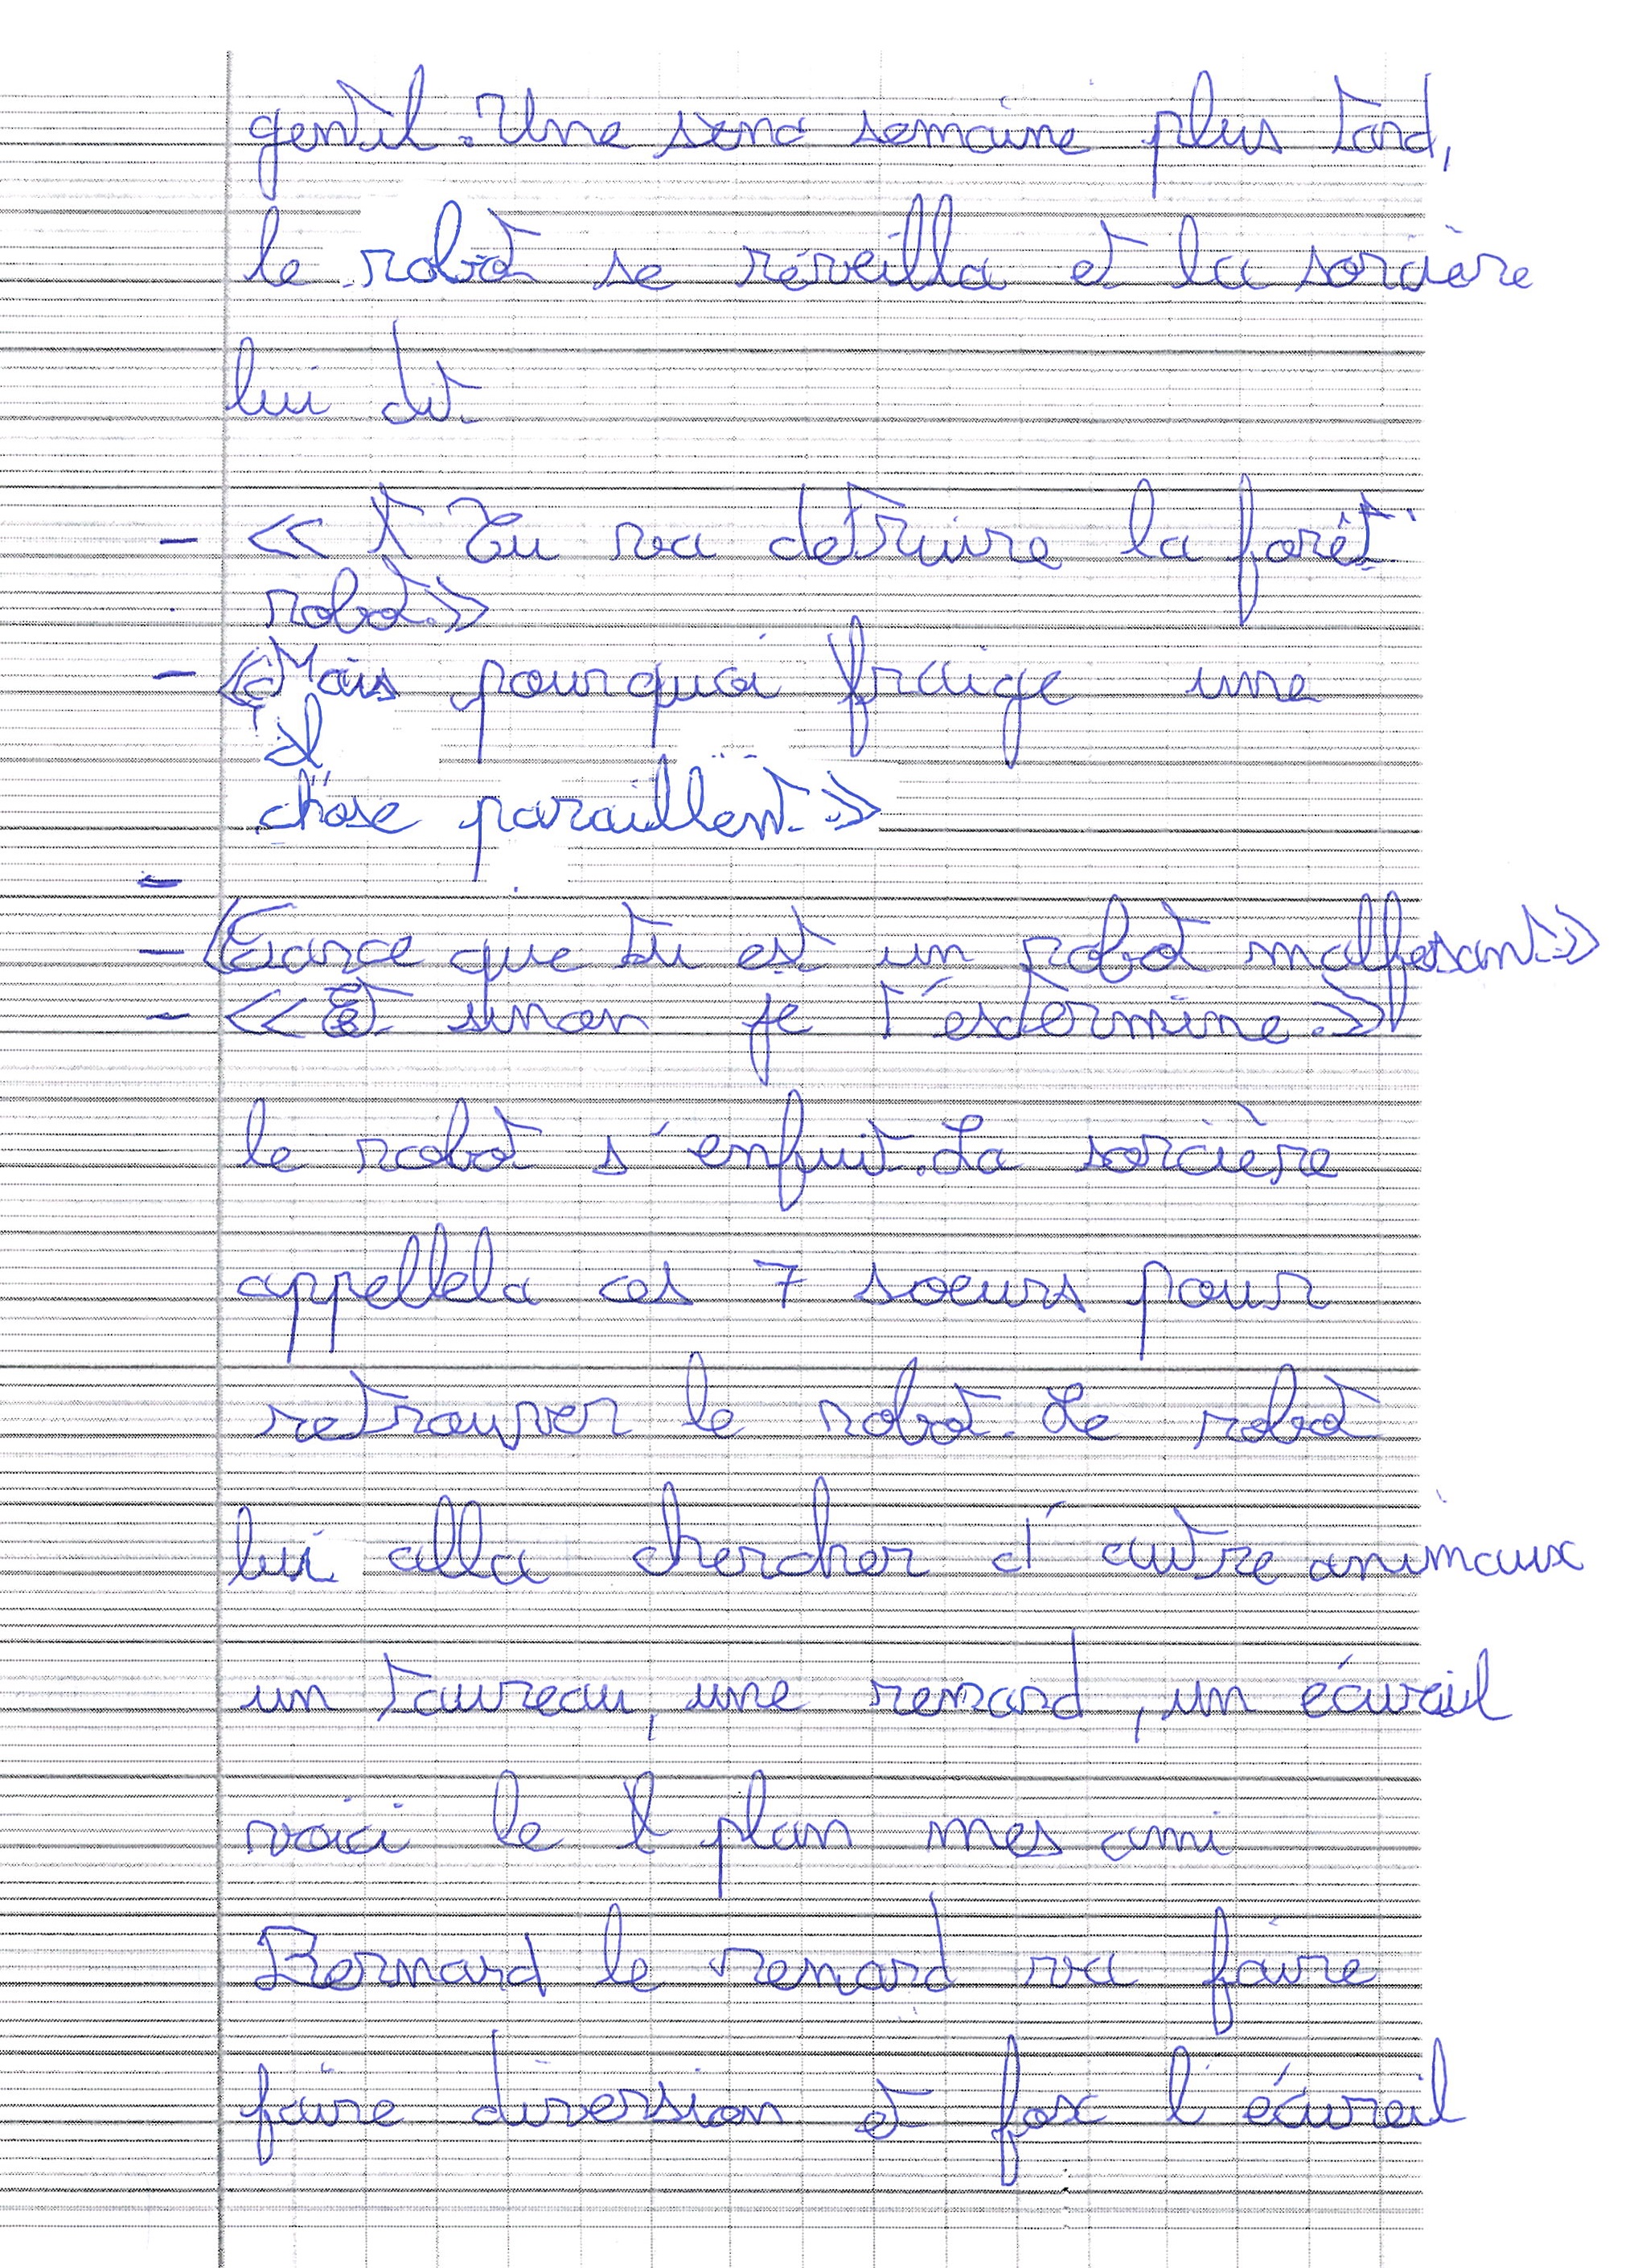 gentil. Une sena semaine plus tard,
le robot se réveilla et la sorcière
lui dit
- << t Tu va detruire la forêt
robot.>>
- << Mais pourquoi fraige une
chose paraillent.>>
-
- << Parce que tu est un robot malfesant.>>
- << Et sinon je t'estermine.>>
le robot s'enfuit. La sorcière
appellela ces 7 soeurs pour
retrouver le robot. Le robot
lui alla chercher d'autre animaux
un taureau, une renard, un écureil
voici le l plan mes ami
Bernard le renard va faire
faire diversion et fox l'écureil